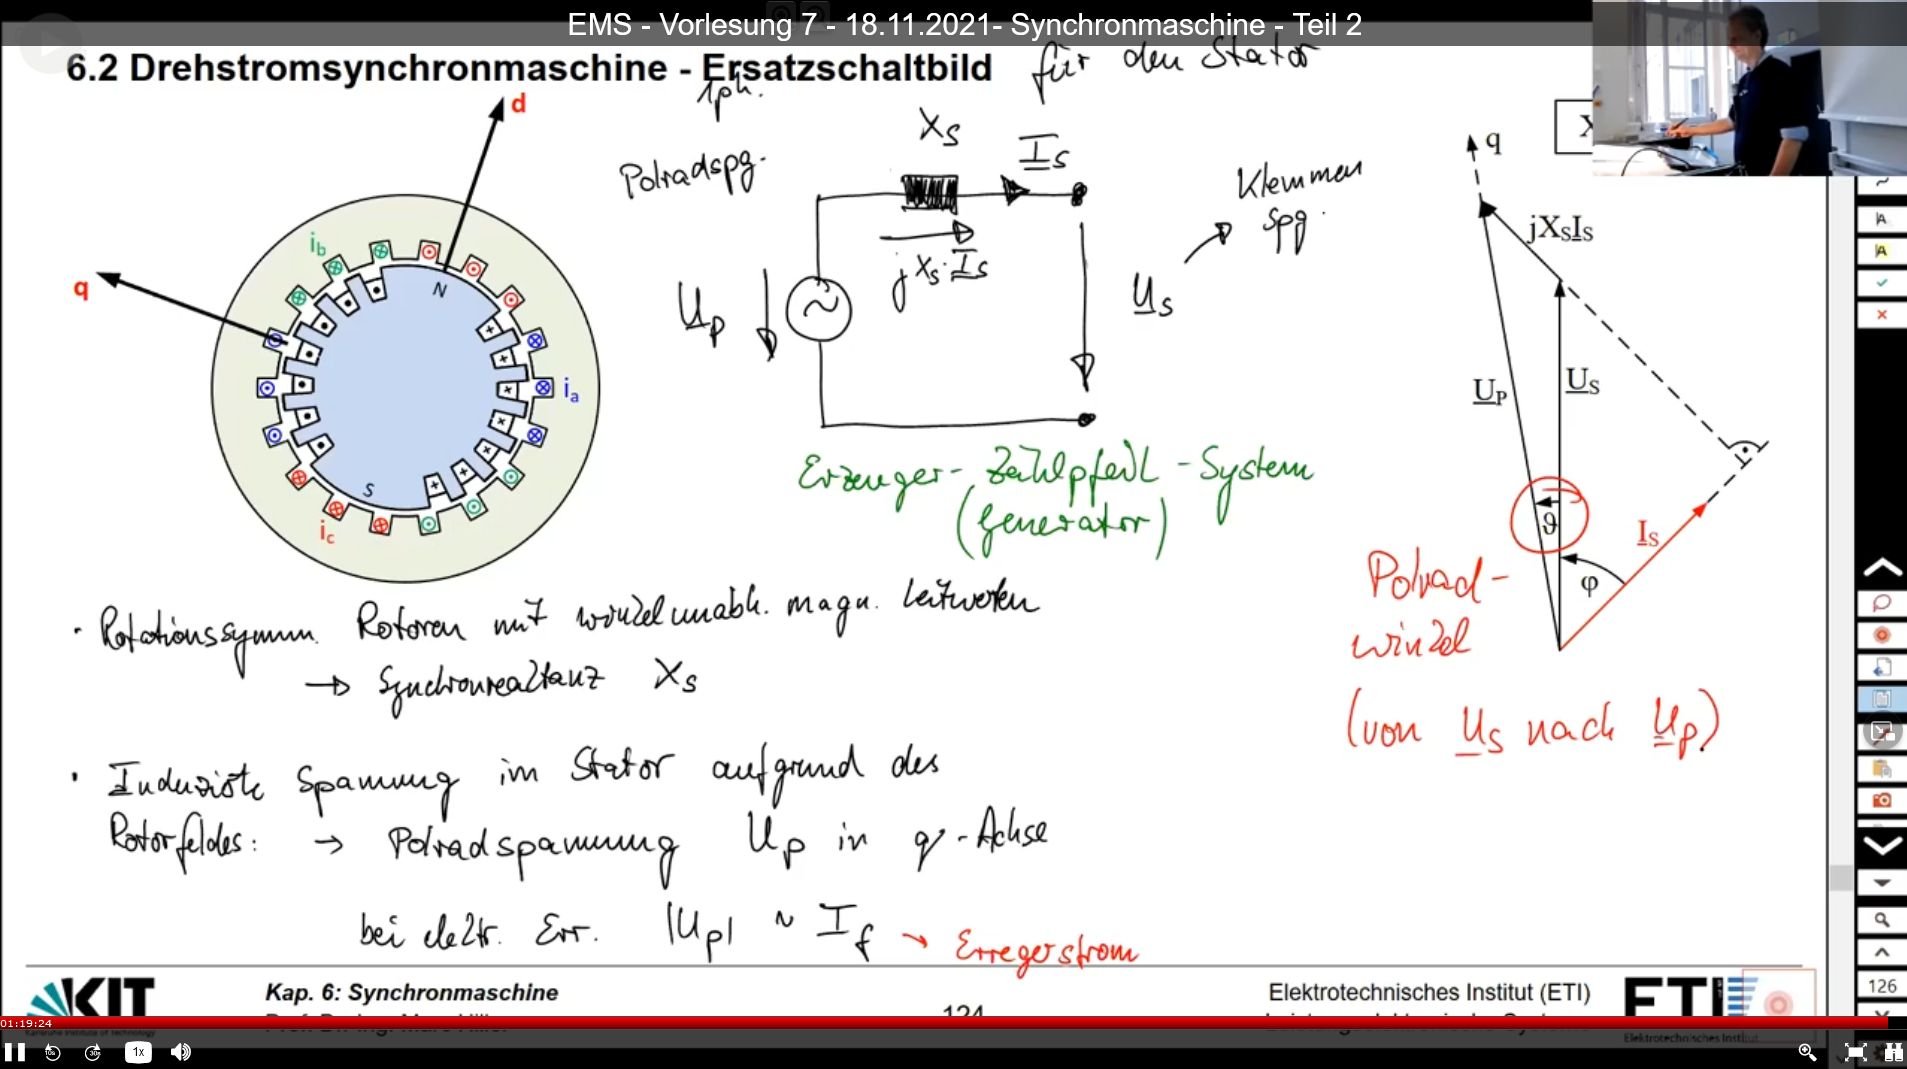 EMS - Vorlesung 7 - 18.11.2021- Synchronmaschine - Teil 2
6.2 Drehstromsynchronmaschine - Ersatzschaltbild für den Stator
1ph.
d
q
N
S
i_b
i_a
i_c
Polradspg.
X_S
I_S
jX_S·I_S
U_P
U_S
Klemmen
spg.
Erzeuger-Zählpfeil-System
(Generator)
q
X
jX_SI_S
U_P
U_S
ϑ
I_S
φ
Polrad-
winkel
(von U_S nach U_P)
· Rotationssymm. Rotoren mit winkelunabh. magn. Leitwerten
→ Synchronreaktanz X_S
· Induzierte Spannung im Stator aufgrund des
Rotorfeldes: → Polradspannung U_P in q-Achse
bei elektr. Err. |U_P| ~ I_f → Erregerstrom
KIT
Kap. 6: Synchronmaschine
124
Elektrotechnisches Institut (ETI)
ETI
Elektrotechnisches Institut
126
01:19:24
10s
30s
1x